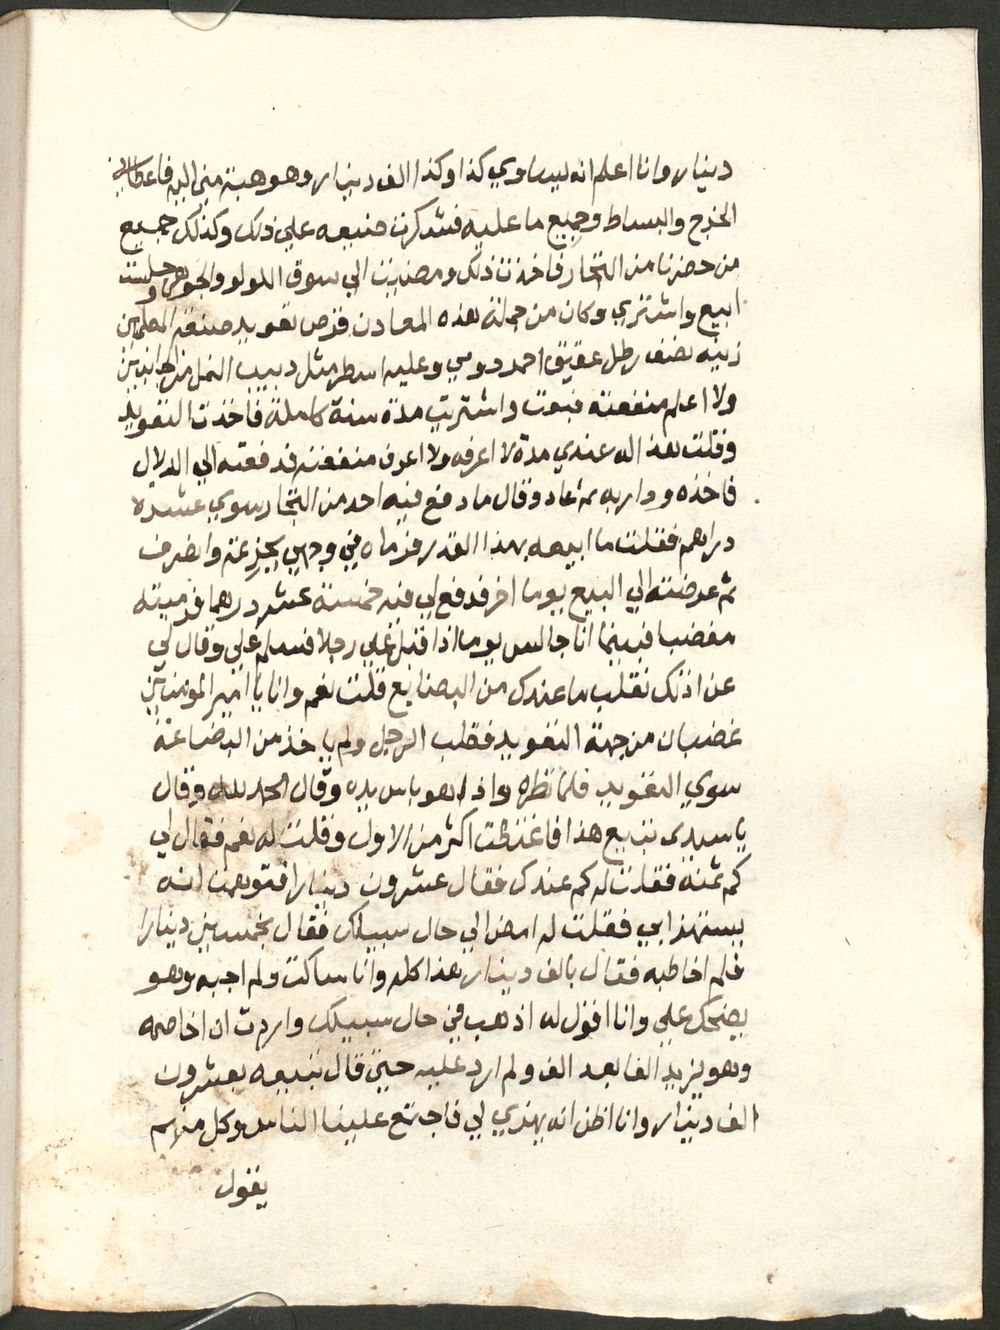 دينار وانا اعلم انه ليساوي كذا وكذا الف دينار وهو هبة مني اليه فاعطاني
الخرج والبساط وجميع ما عليه فشكرت صنيعه علي ذلك وكذلك جميع
من حضرنا من التجار فاخذت ذلك ومضيت الي سوق اللولو والجوهر وجلست
ابيع واشتري وكان من جملة هذه المعادن قرص تعويد صنعة المعلمين
زنته نصف رطل عقيق احمر رومي وعليه اسطر مثل دبيب النمل من الجانبين
ولا اعلم منفعته فبعت واشتريت مدة سنة كاملة فاخذت التعويد
وقلت هذا له عندي مدة لا اعرفه ولا اعرف منفعته فدفعته الي الدلال
فاخذه ودار به ثم عاد وقال ما دفع فيه احد من التجار سوي عشرة
دراهم فقلت ما ابيعه بهذا القدر فرماه في وجهي وانصرف
ثم عرضته الي البيع يوما اخر فدفع لي فيه خمسة عشر درهما فرميته
مغضبا فبينما انا جالس يوما اذا قبل علي رجلا فسلم علي وقال لي
عن اذنك نقلب ما عندك من البضايع قلت نعم وانا يا امير المومنين
غضبان من جهة التعويد فقلب الرجل ولم ياخذ من البضاعة
سوي التعويد فلما نظره واذا هو باس يده وقال الحمد لله وقال
يا سيدي تبيع هذا فاغتظت اكثر من الاول وقلت له نعم فقال لي
كم ثمنه فقلت له كم عندك فقال عشرون دينارا فتوهمت انه
يستهزا بي فقلت له امض الي حال سبيلك فقال بخمسين دينارا
فلم اخاطبه فقال بالف دينار هذا كله وانا ساكت ولم اجبه وهو
يضحك علي وانا اقول له اذهب في حال سبيلك واردت ان اخاصمه
وهو يزيد الفا بعد الف ولم ارد عليه حتي قال تبيعه بعشرون
الف دينار وانا اظن انه يهزي لي فاجتمع علينا الناس وكل منهم
يقول